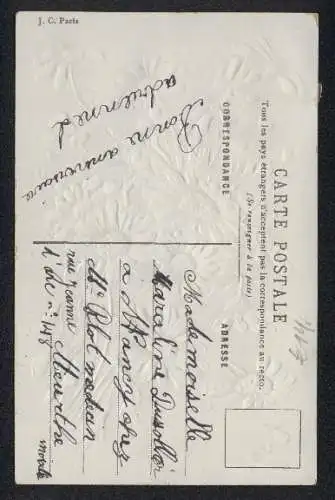 J. C. Paris
CARTE POSTALE
Tous les pays étrangers n'acceptent pas la correspondance au recto.
(Se renseigner à la poste)
CORRESPONDANCE
ADRESSE
Bonne aniversaire
adrienne d
Mademoiselle
a Nancy chez
Mr Blot medecin
rue jeanne
d'arc n° 148
Meurthe